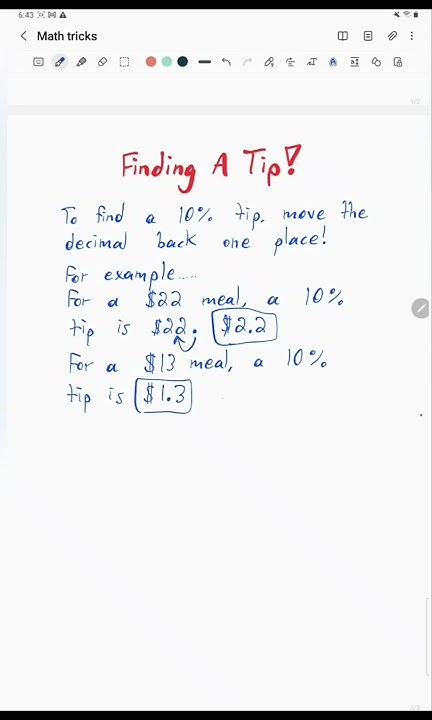 6:43
Math tricks
1/2
Finding A Tip!
To find a 10% tip, move the
decimal back one place!
For example.....
For a $22 meal, a 10%
tip is $22. $2.2
For a $13 meal, a 10%
tip is $1.3
2/2